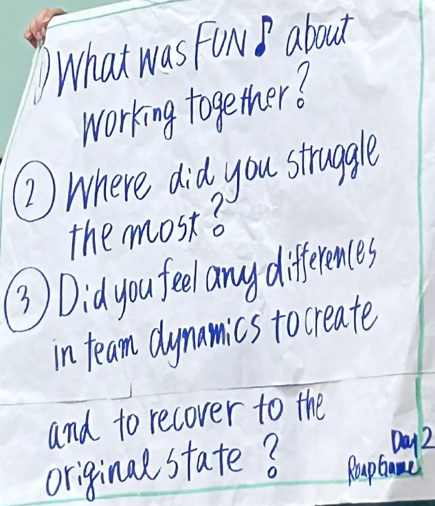 ① What was FUN♪ about
working together?
② Where did you struggle
the most?
③ Did you feel any differences
in team dynamics to create
and to recover to the
original state?
Day 2
Roap Game